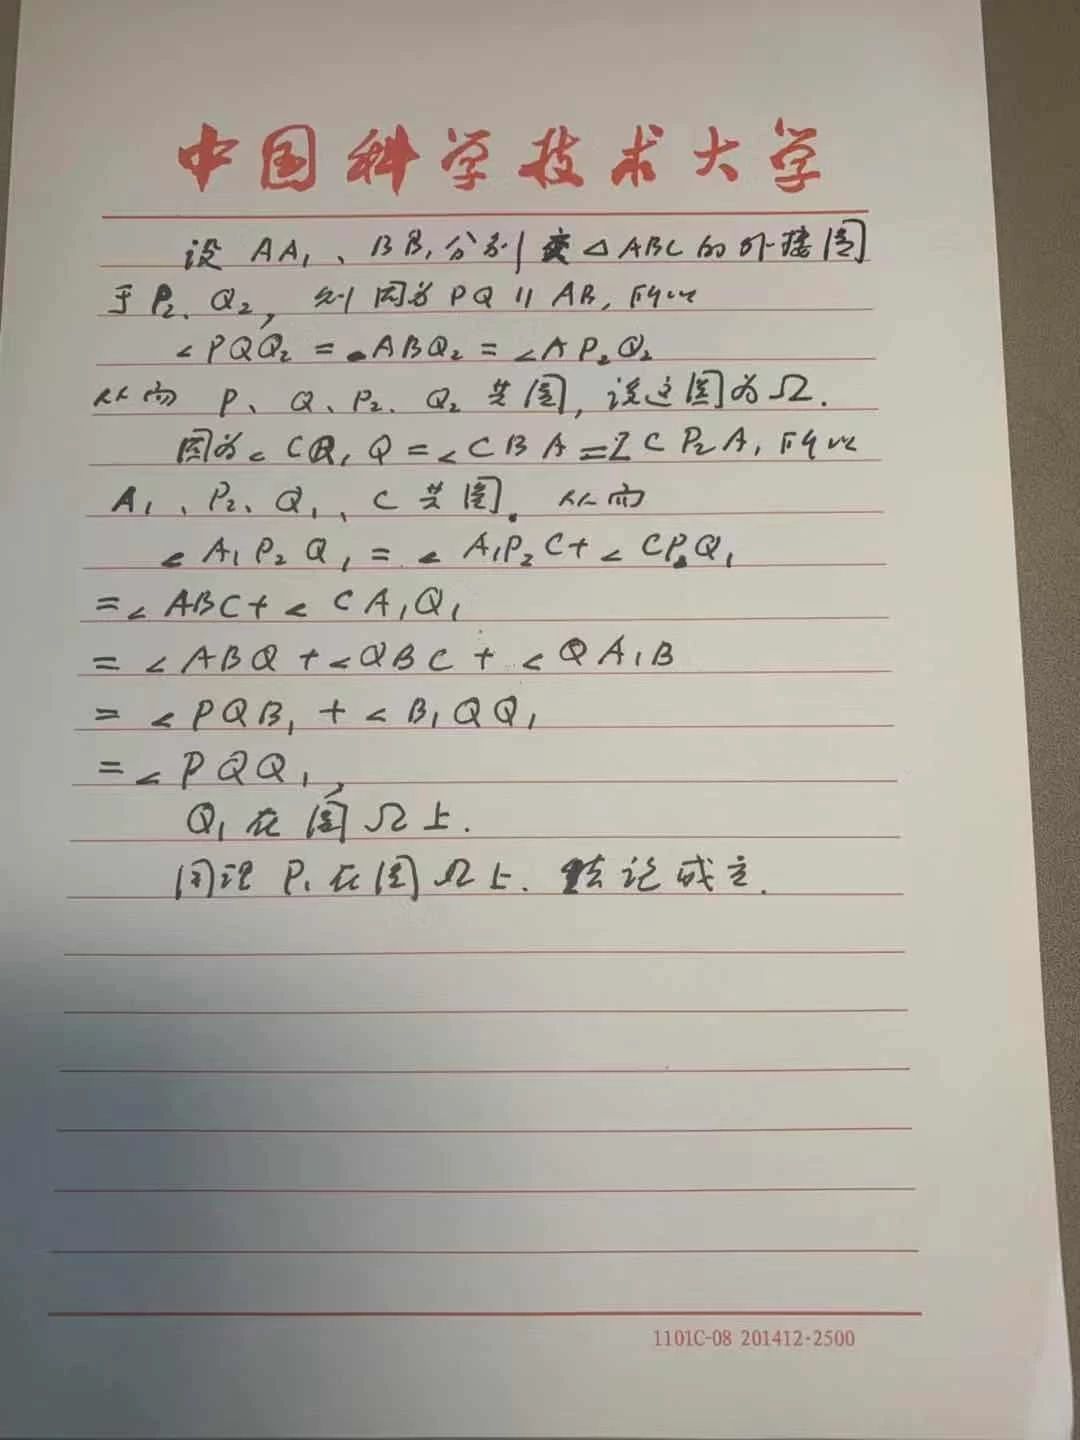 中国科学技术大学
设 AA₁、BB₁分别交△ABC的外接圆
于P₂、Q₂, 则因为PQ∥AB, 所以
∠PQQ₂=∠ABQ₂=∠AP₂Q₂
从而 P、Q、P₂、Q₂共圆, 设这圆为Ω.
因为∠CQ₁Q=∠CBA=∠CP₂A, 所以
A₁、P₂、Q₁、C共圆. 从而
∠A₁P₂Q₁=∠A₁P₂C+∠CP₂Q₁
=∠ABC+∠CA₁Q₁
=∠ABQ+∠QBC+∠QA₁B
=∠PQB₁+∠B₁QQ₁
=∠PQQ₁,
Q₁在圆Ω上.
同理P₁在圆Ω上. 结论成立.
1101C-08 201412-2500